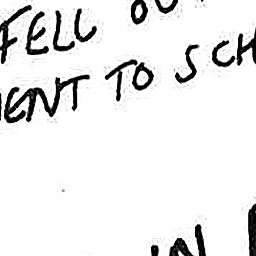 FELL OU
ENT TO SCH
IN